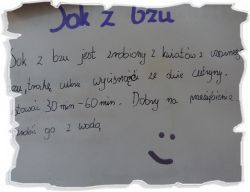 Sok z bzu
Sok z bzu jest zrobiony z kwiatów z czarnego
bzu, trochę cukru wycisnąć ze dwie cytryny.
30 min - 60 min. Dobry na przeziębienie.
go z wodą